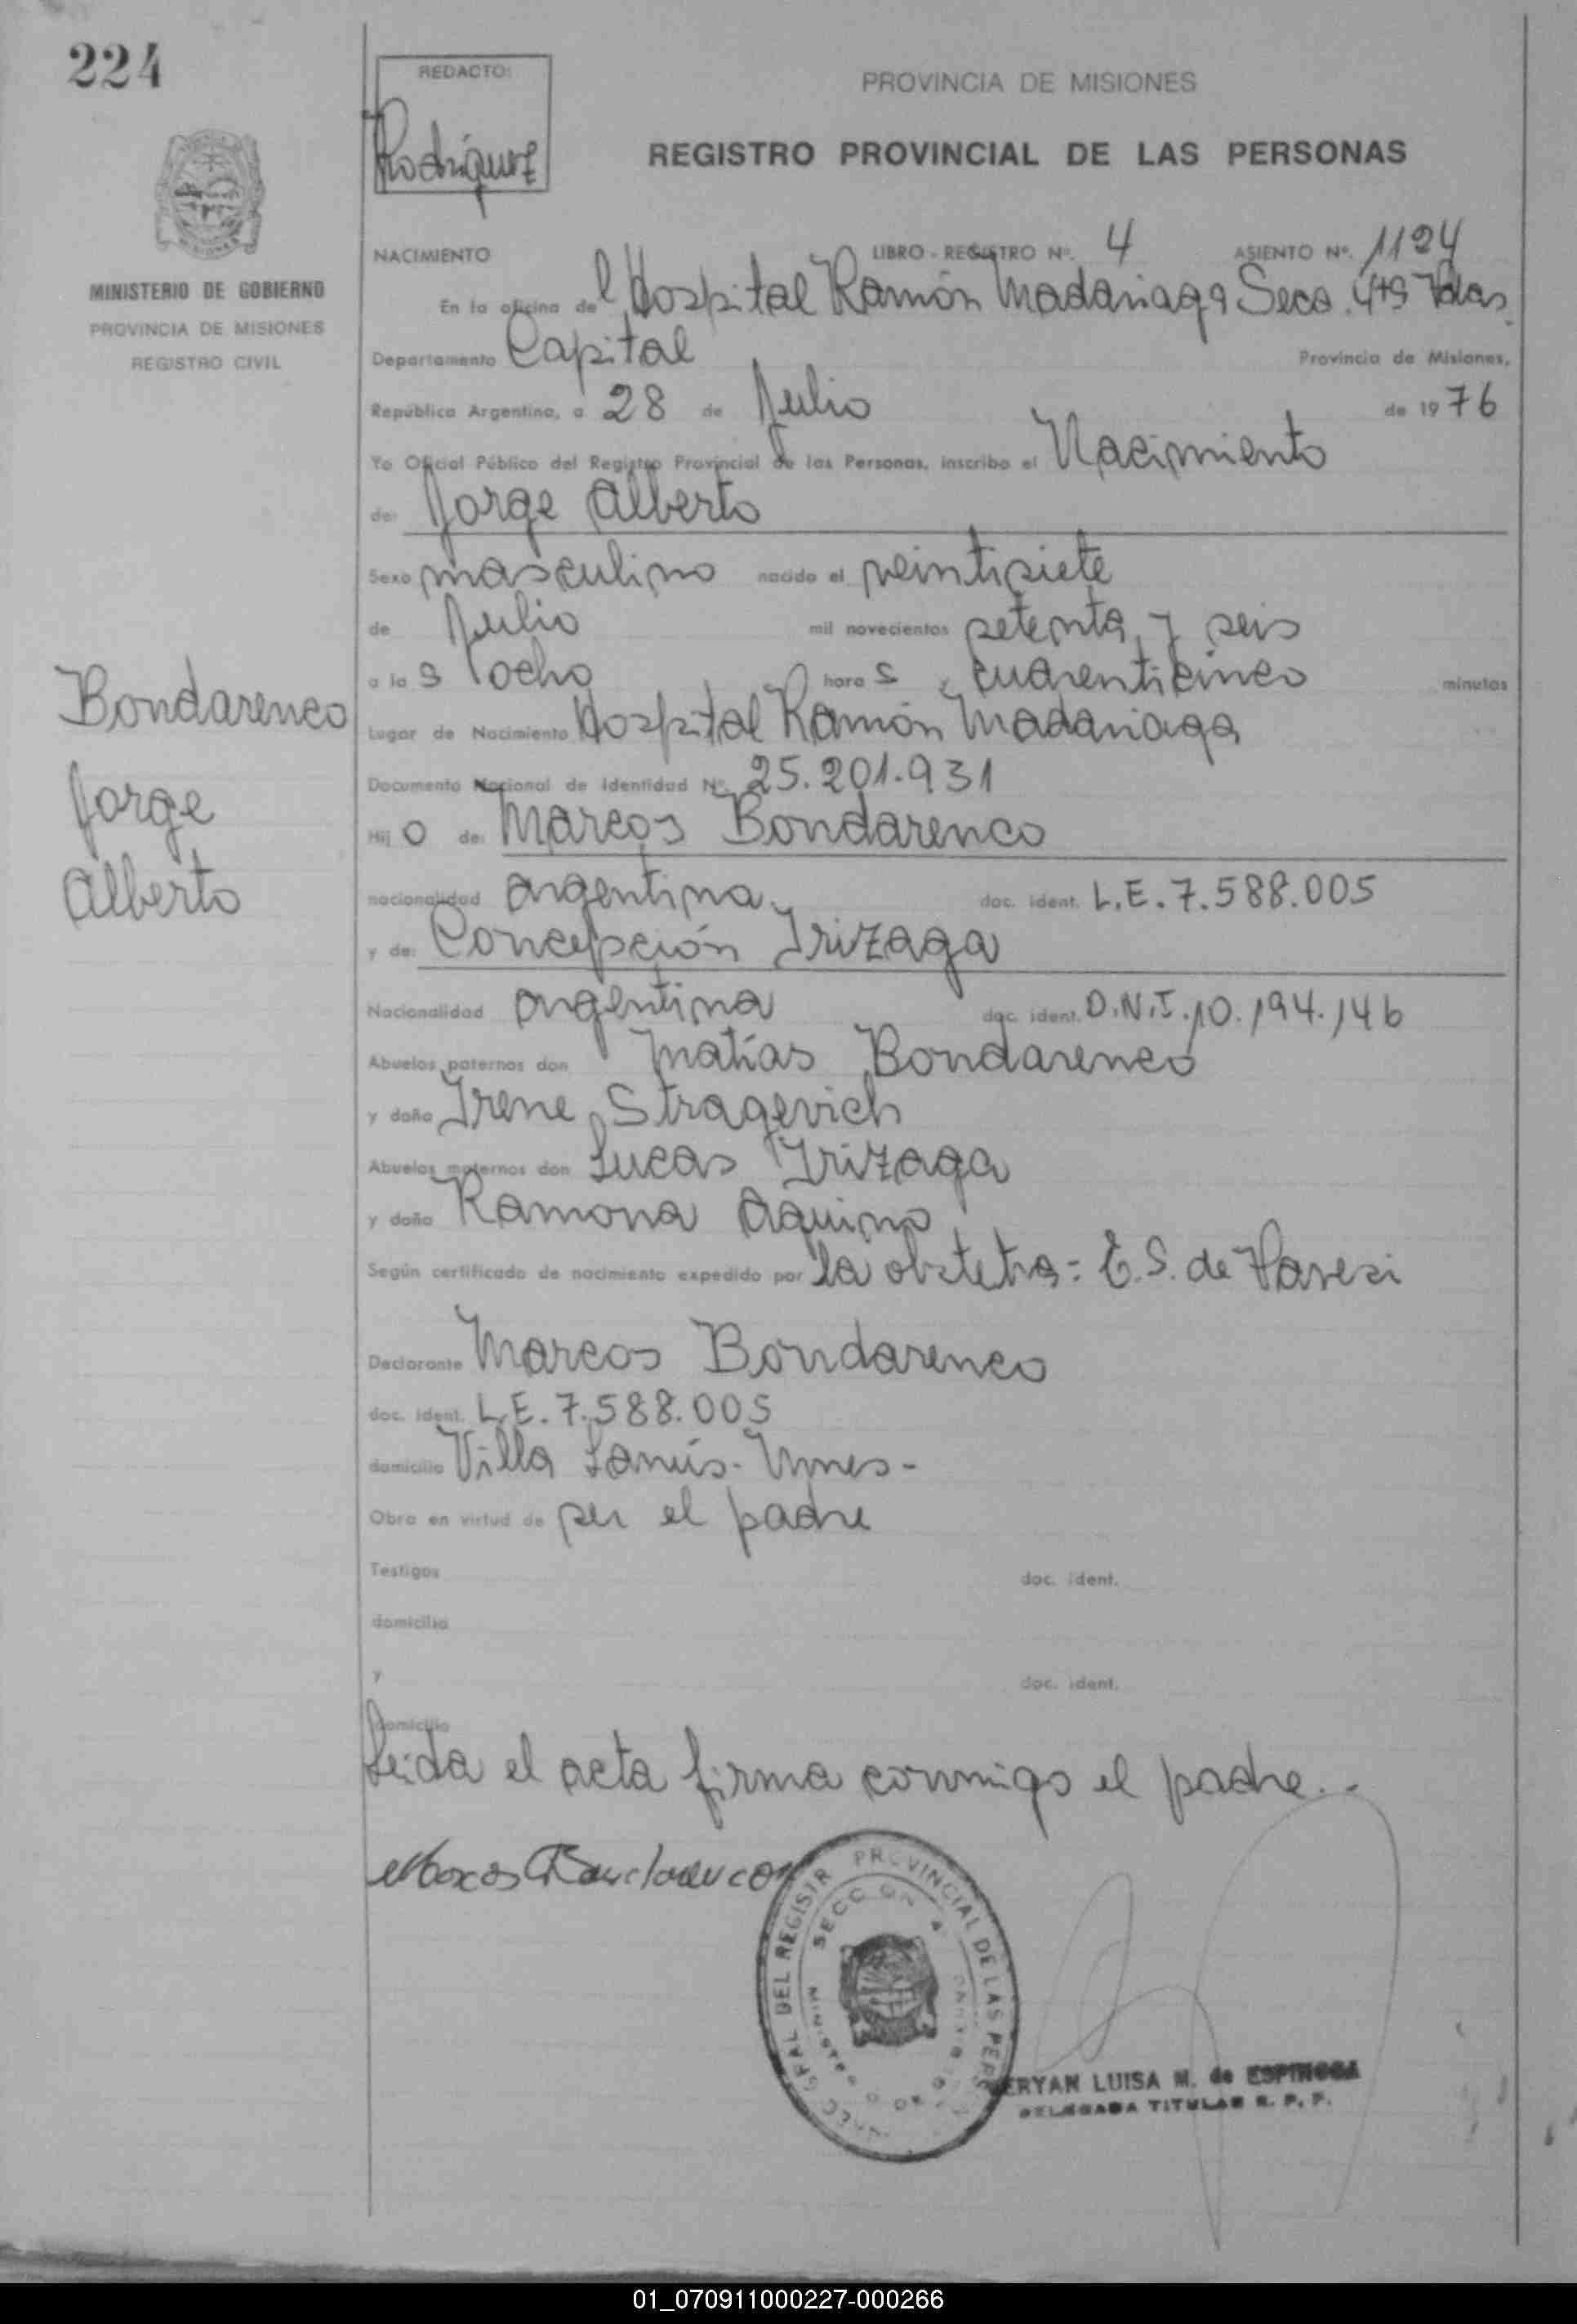 224
REDACTO:
Rodríguez
PROVINCIA DE MISIONES
REGISTRO PROVINCIAL DE LAS PERSONAS
MINISTERIO DE GOBIERNO
PROVINCIA DE MISIONES
REGISTRO CIVIL
NACIMIENTO LIBRO - REGISTRO Nº. 4 ASIENTO Nº. 1124
En la oficina del Hospital Ramón Madariaga Secc. 4ta Pdas.
Departamento Capital Provincia de Misiones,
República Argentina, a 28 de Julio de 1976
Yo Oficial Público del Registro Provincial de las Personas, inscribo el Nacimiento
de: Jorge Alberto
Sexo masculino nacido el veintisiete
de Julio mil novecientos setenta y seis
a las ocho horas y cuarenticinco minutos
Lugar de Nacimiento Hospital Ramón Madariaga
Documento Nacional de Identidad Nº 25.201.931
Hijo de: Marcos Bondarenco
nacionalidad argentina doc. ident. L.E. 7.588.005
y de: Concepción Irizaga
Nacionalidad argentina doc. ident. D.N.I. 10.194.146
Abuelos paternos don Matías Bondarenco
y doña Irene Stragevich
Abuelos maternos don Lucas Irizaga
y doña Ramona Aquino
Según certificado de nacimiento expedido por la obstetra: E.S. de Varesi
Declarante Marcos Bondarenco
doc. ident. L.E. 7.588.005
domicilio Villa Lanús - Mnes -
Obra en virtud de ser el padre
Testigos doc. ident.
domicilio
y doc. ident.
domicilio
Leida el acta firma conmigo el padre.-
Bondarenco
Jorge
Alberto
Marcos Bondarenco
GRAL DEL REGISTR PROVINCIAL DE LAS PERS
SECCION 4
ERYAN LUISA M. de ESPINOSA
DELEGADA TITULAR R. P. P.
01_070911000227-000266